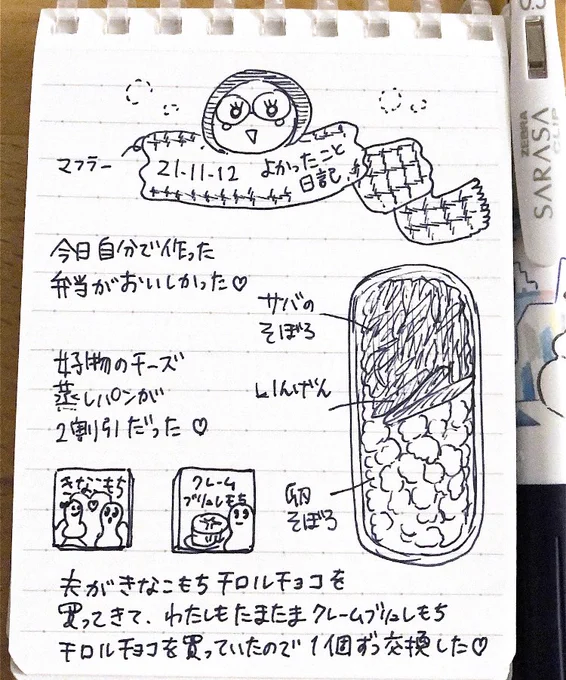 マフラー
21-11-12 よかったこと
日記
今日自分で作った
弁当がおいしかった♡
サバの
そぼろ
好物のチーズ
蒸しパンが
2割引だった♡
いんげん
卵
そぼろ
きなこもち
クレーム
ブリュレもち
夫がきなこもちチロルチョコを
買ってきて、わたしもたまたまクレームブリュレもち
チロルチョコを買っていたので1個ずつ交換した♡
0.5
ZEBRA
SARASA
CLIP